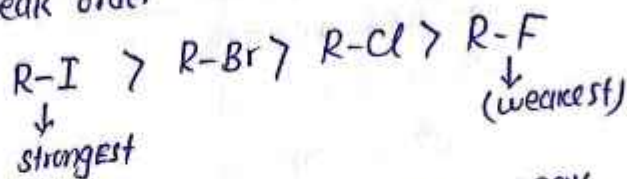 order
R-I > R-Br > R-Cl > R-F
↓ ↓
strongest (weakest)